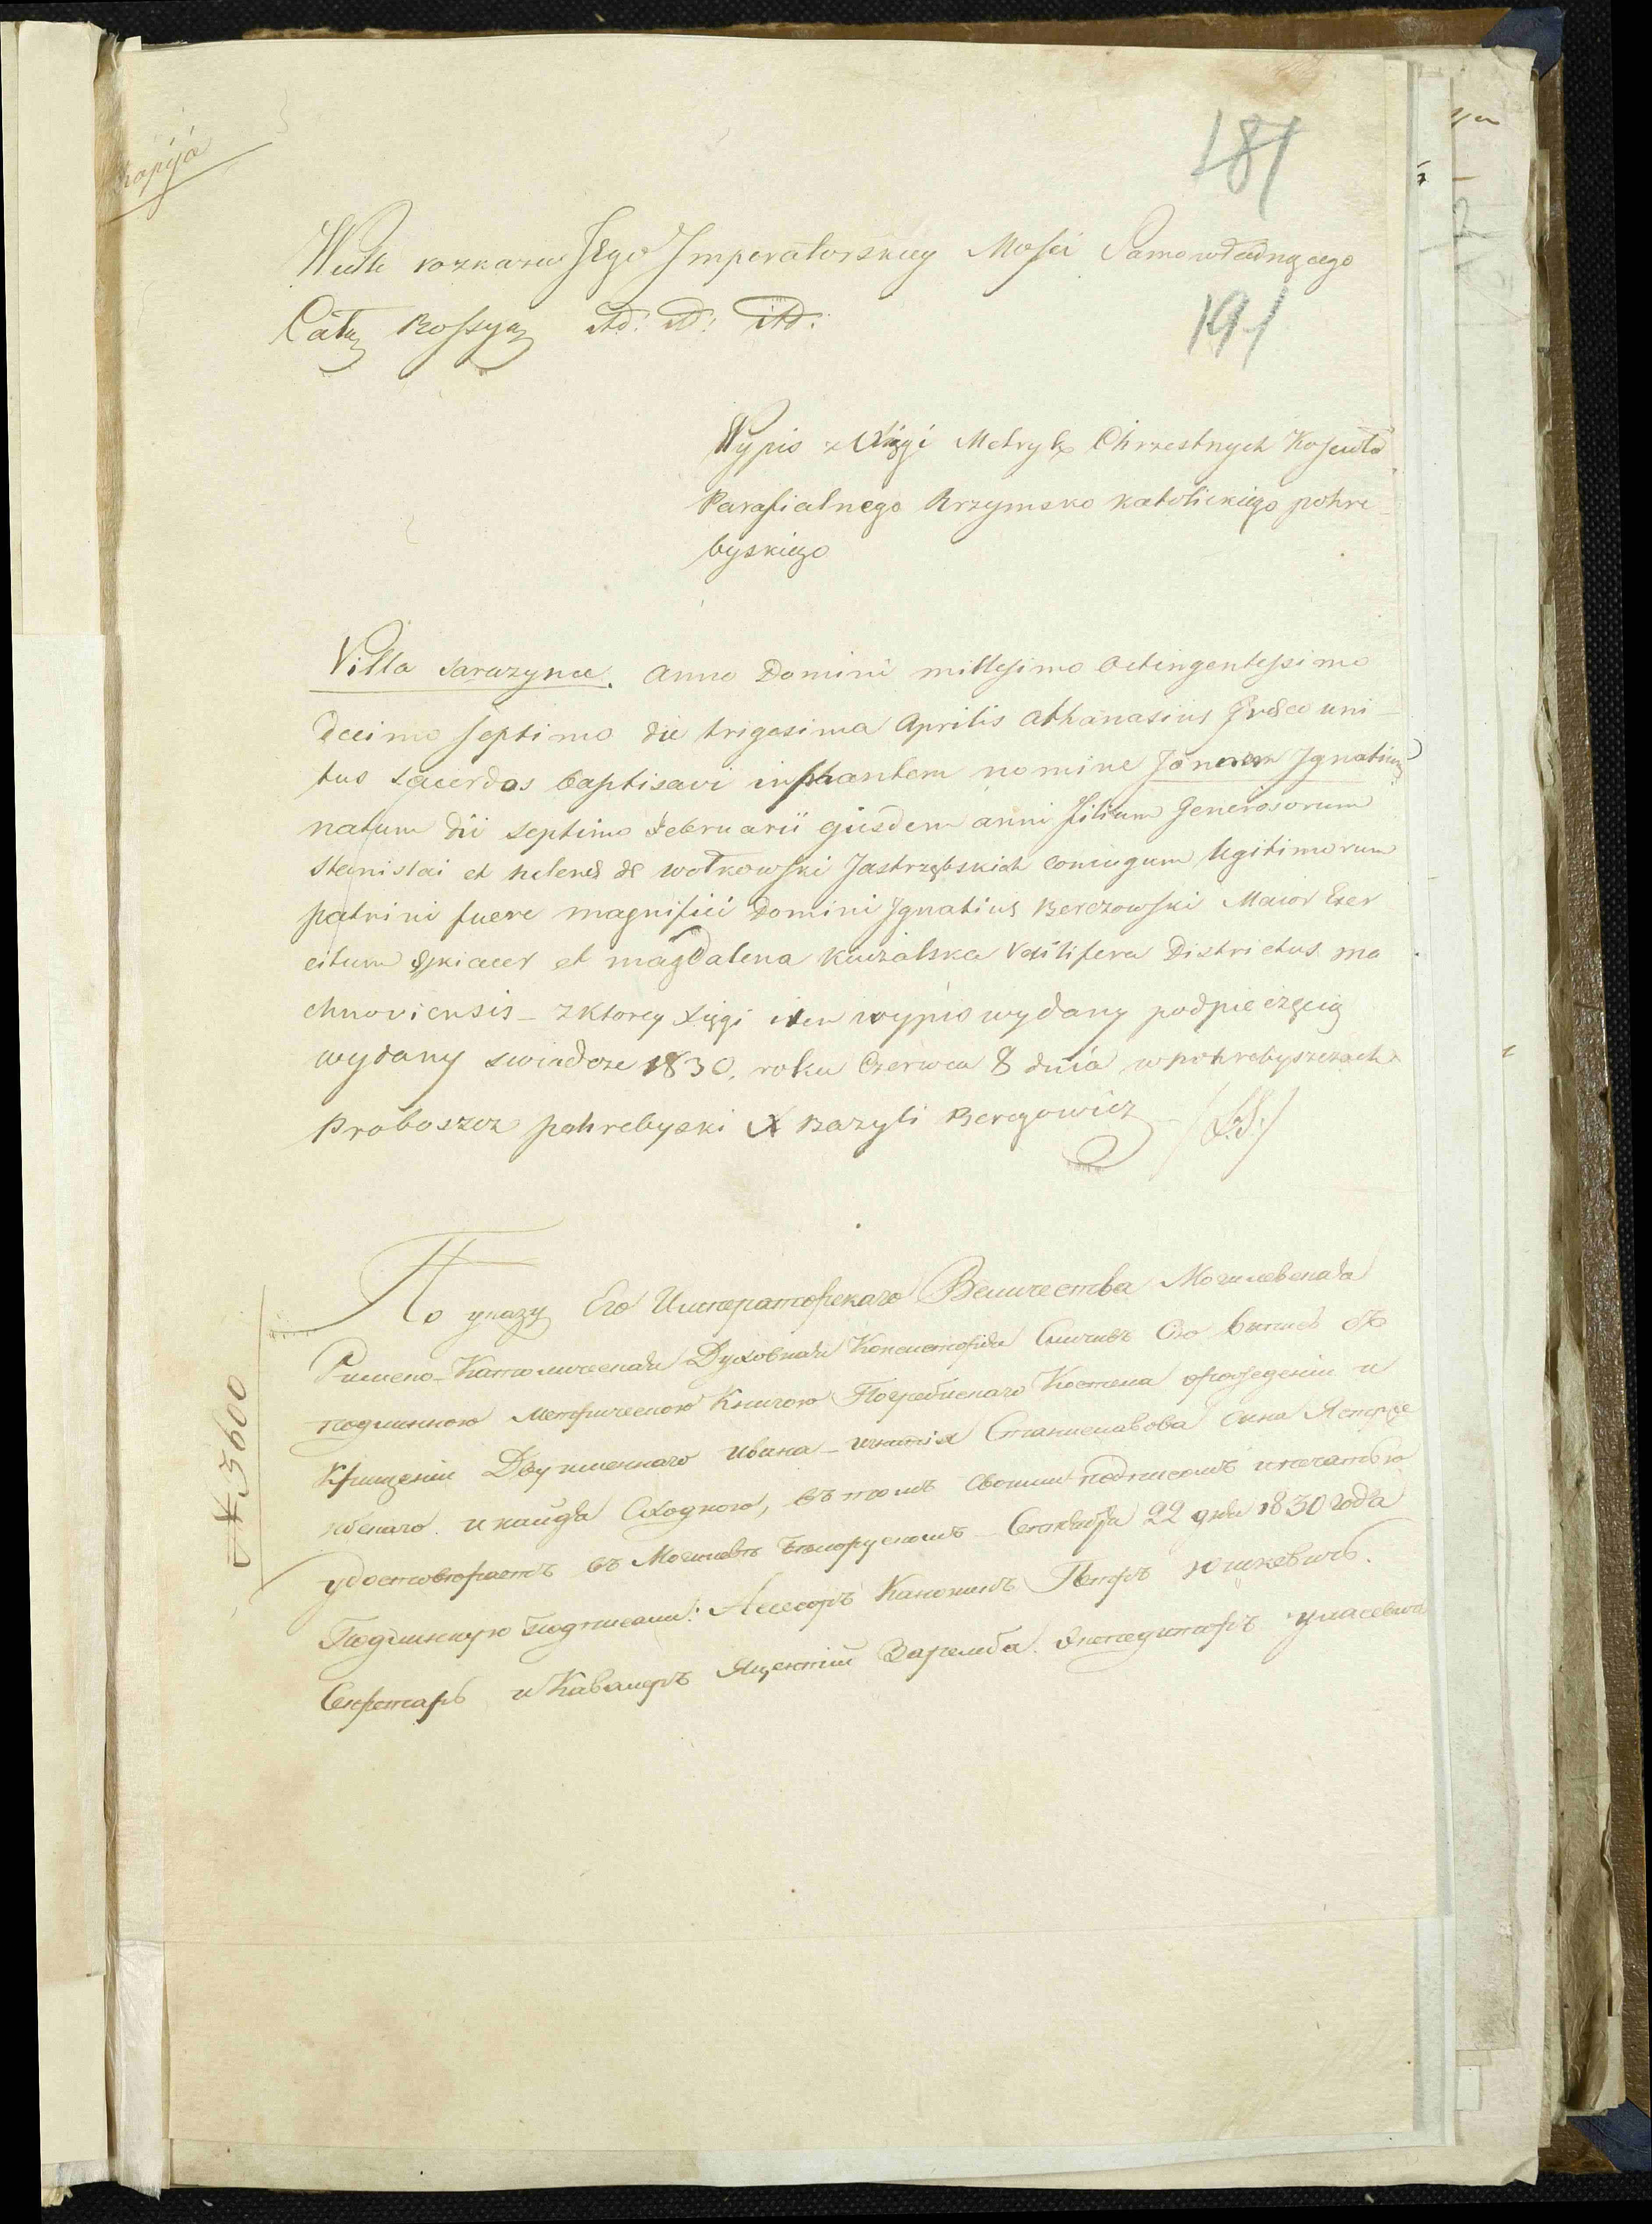 Kopija
181
Wedle rozkazu Jego Imperatorskiey Mosci Samowładnącego
Całey Rossyey itd: itd: itd:
191
Wypis z Xięgi Metryk Chrzestnych Koscioła
Parafialnego Rrzymsko katolickiego pohre
byskiego
Villa Sarazynce. Anno Domini millesimo Octingentessimo
decimo septimo die trigesima Aprilis Athanasius Greco uni
tus Sacerdos baptisavi inphantem nomine Joannem Ignatium
natum dii septimo Februarii ejusdem anni filium Generosorum
Stanislai et helenes de wołkowski Jastrzębskich coniugum legitimorum
patrini fuere magnifici Domini Ignatius Berezowski Maior Exer
citum et magdalena Vexilifera Districtus ma
chnoviensis – z ktorey Xięgi iten wypis wydany podpieczęcią
wydany swiadcze 1830. roku Czerwca 8 dnia w pohrebyszczach
Proboszcz pohrebyski X Bazyli Beregowicz /L.S:/
По указу Его Императорскаго Величества Могилевская
Римско-Католическая Духовная Консисторія Сличивъ Сію выпись съ
подлинною метрическою Книгою Погребискаго Костела орожденіи и
Крищеніи Двуименнаго Ивана-игнатія Станиславова сына Ястрже
мбскаго. и найдя Сходною, въ томъ своимъ подписомъ и печатью
удостовѣряетъ въ Могилевѣ Бѣлорускомъ Сентября 22 дня 1830 года
Подлинную подписали: Асесоръ Каноникъ Петръ Юшкевичъ.
Секретарь и Кавалеръ Яцентій Заремба. Экспедиторъ
№ 5600